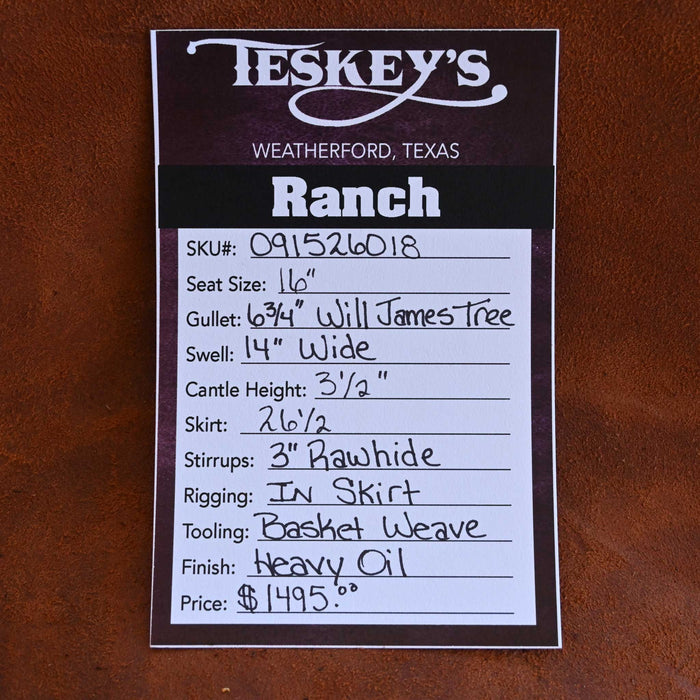 TESKEY'S
WEATHERFORD, TEXAS
Ranch
SKU#: 091526018
Seat Size: 16"
Gullet: 6 3/4" Will James Tree
Swell: 14" Wide
Cantle Height: 3 1/2"
Skirt: 26 1/2
Stirrups: 3" Rawhide
Rigging: In Skirt
Tooling: Basket Weave
Finish: Heavy Oil
Price: $1495.00